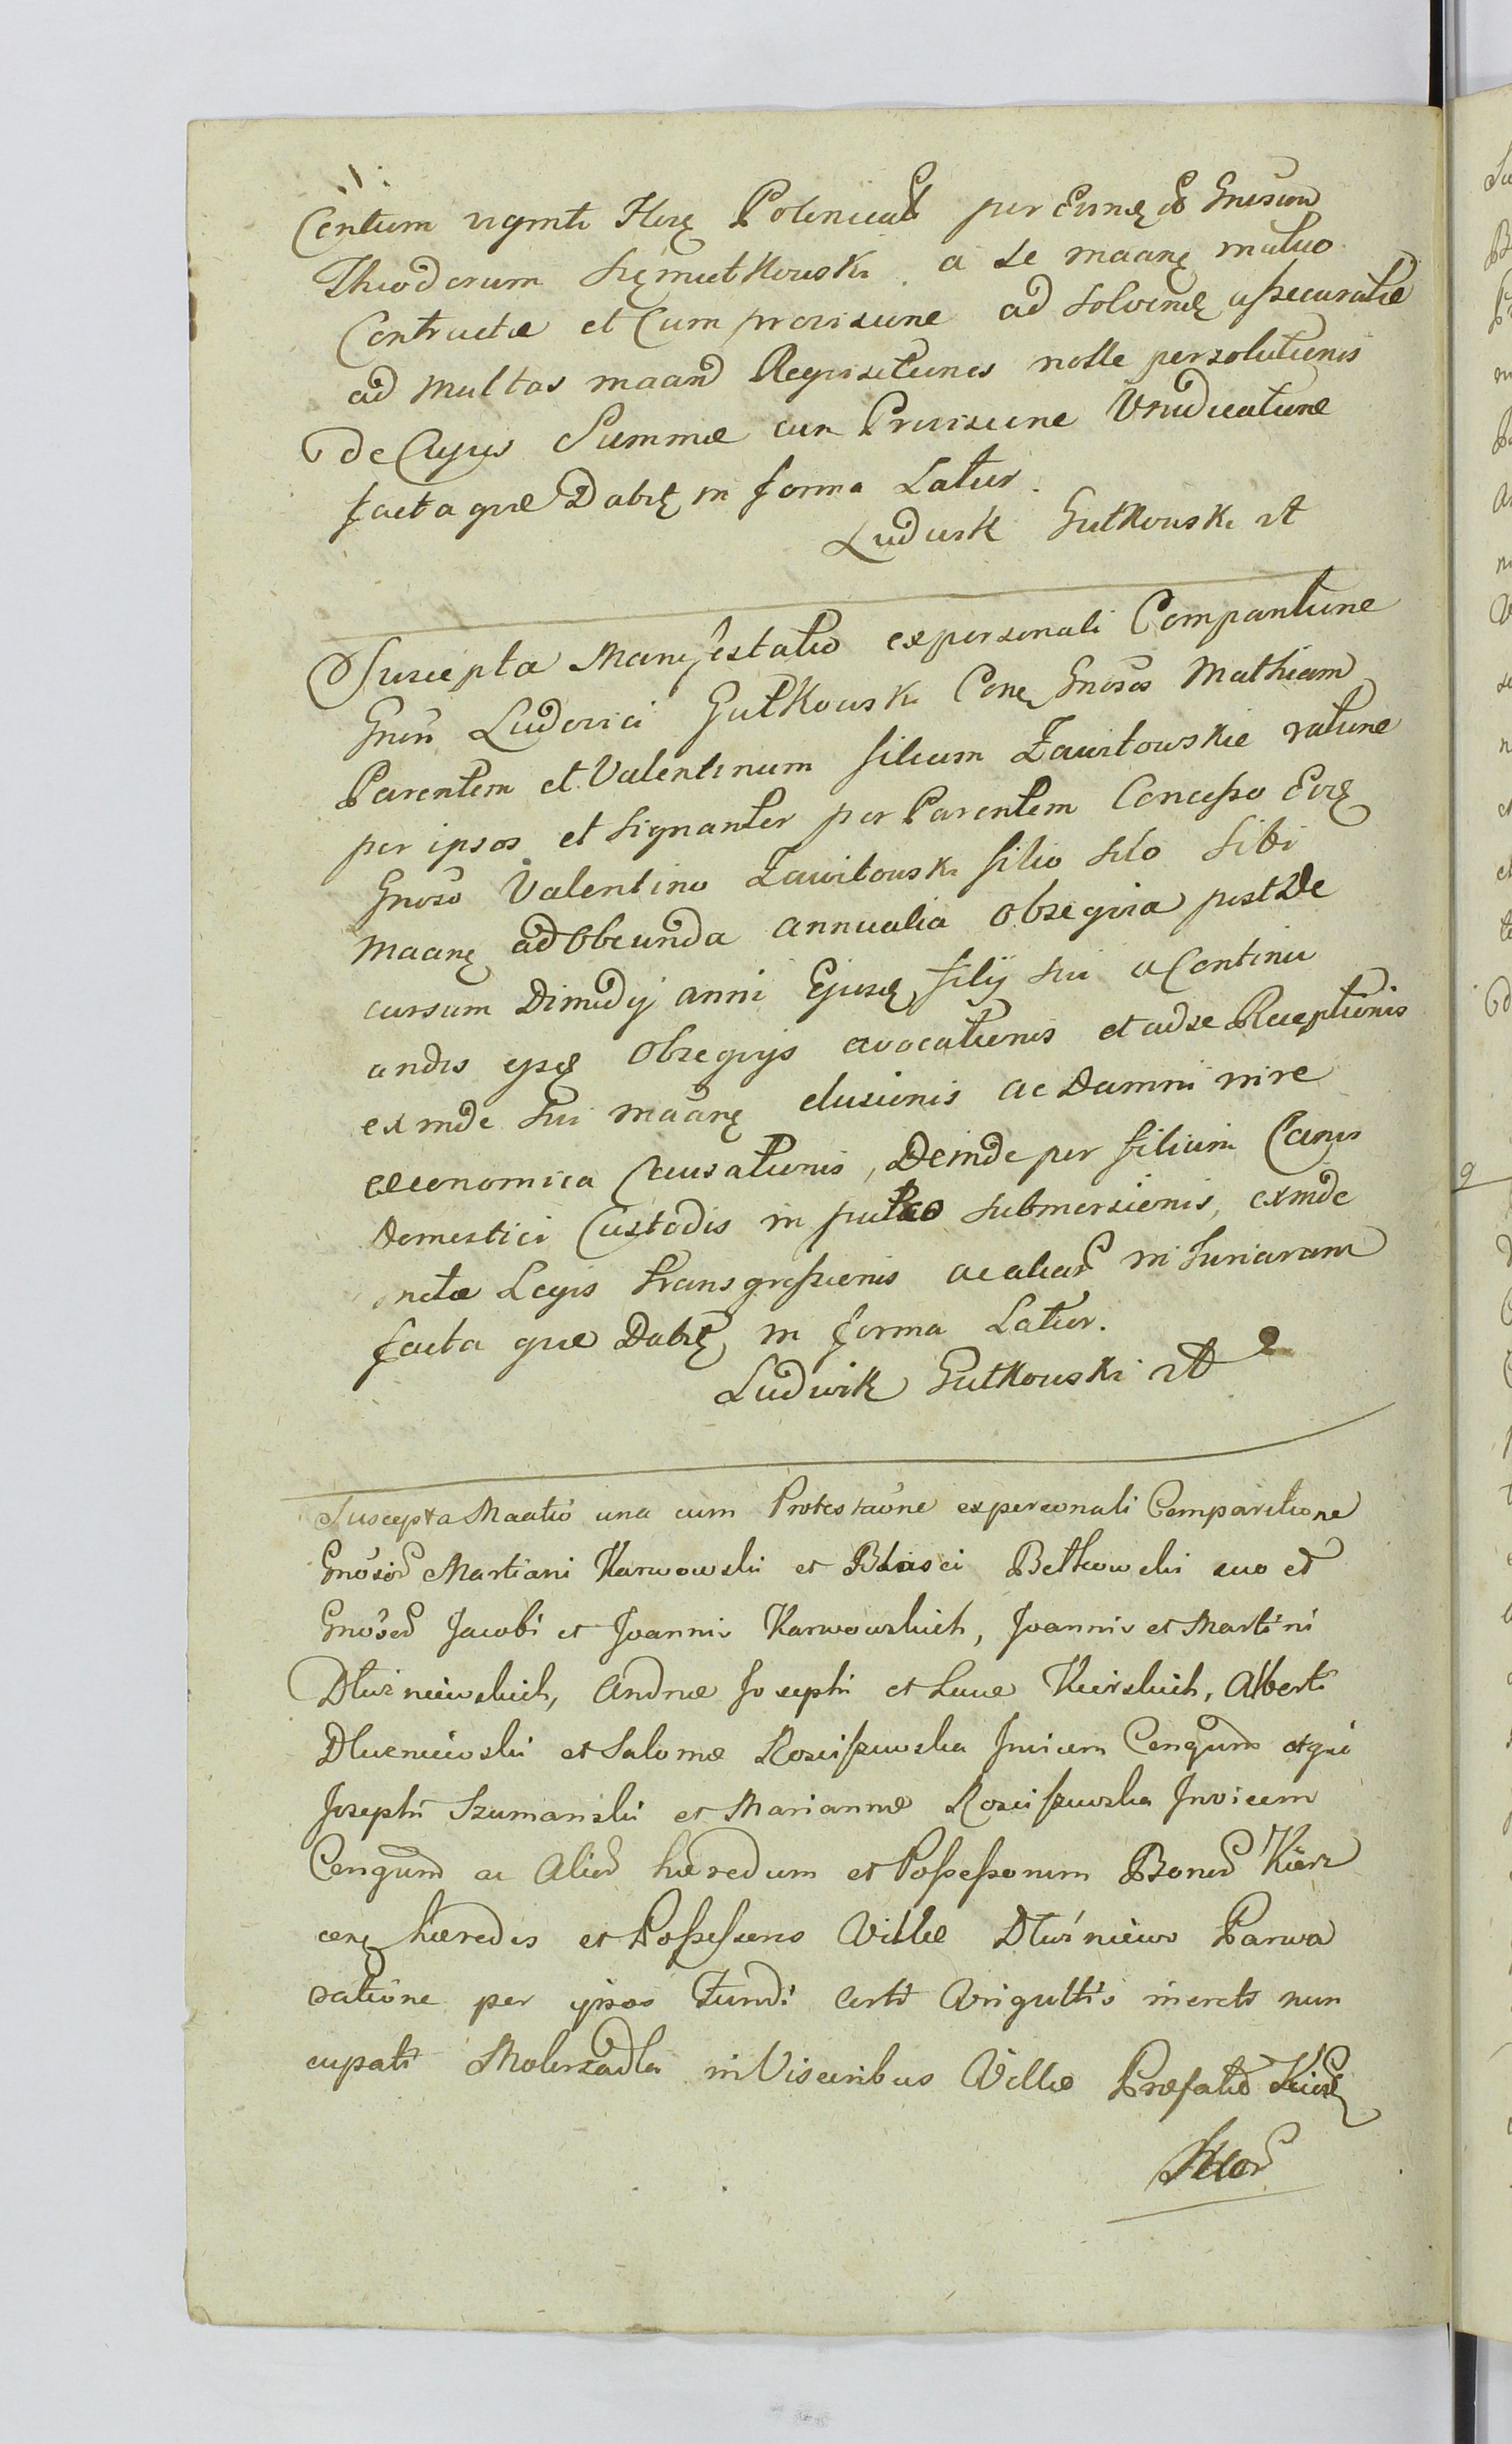 Centum viginti Flor Polonical per eund Gnosum
Theodorum Ziemietkowski a se maane mutuo
Contractæ et Cum provisione ad solvend assecuratæ
ad multas maand Requisitiones nolle persolutionis
de Cujus Summæ cum Provisione Vindicatione
facta quæ Dabit in forma Latior.
Ludwik Gutkowski
Suscepta Manifestatio ex personali Comparitione
Gnosi Ludovici Gutkowski Cone Gnosos Mathiam
Parentem et Valentinum filium Zawitowskie ratione
per ipsos et signanter per Parentem Concesso
Gnoso Valentino Zawitowski filio suo sibi
maane ad obeunda annualia obsequia post De
cursum Dimidij anni Ejusd filij sui a Continu
andis ejsd obsequijs avocationis et ad se Receptionis
exinde sui maane elusionis ac Damni in re
œconomica Causationis, Deinde per filium Canis
Domestici Custodis in puteo submersionis, exinde
notæ Legis transgressionis ac aliar injuriarum
facta quæ Dabit in forma Latior.
Ludwik Gutkowski
Suscepta Maatio una cum Protestaone ex personali Comparitione
Gnosor Martiani Karwowski et Blasei Betkowski suo et
Gnosor Jacobi et Joannis Karwowskich, Joannis et Martini
Dłużniewskich, Andreæ Josephi et Lucæ Kierskich, Alberti
Dłużniewski et Salomæ Rosciszewska Invicem Congum atque
Josephi Szumanski et Mariannæ Rosciszewska Invicem
Congum ac Alior hæredum et Possessorum Bonor Kierz
cone hæredes et Possessores Villæ Dłużniewo Parwa
ratione per ipsos Fundi certi Virgultis increti nun
cupati in Visceribus Villæ Præfatæ